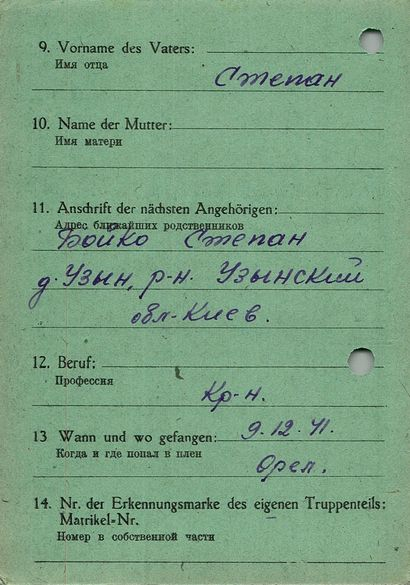 9. Vorname des Vaters:
Имя отца
Степан
10. Name der Mutter:
Имя матери
11. Anschrift der nächsten Angehörigen:
Адрес ближайших родственников
Бойко Степан
д. Узын, р-н. Узынский
обл-Киев.
12. Beruf:
Профессия
Кр-н.
13 Wann und wo gefangen: 9.12.41.
Когда и где попал в плен
Орел.
14. Nr. der Erkennungsmarke des eigenen Truppenteils:
Matrikel-Nr.
Номер в собственной части